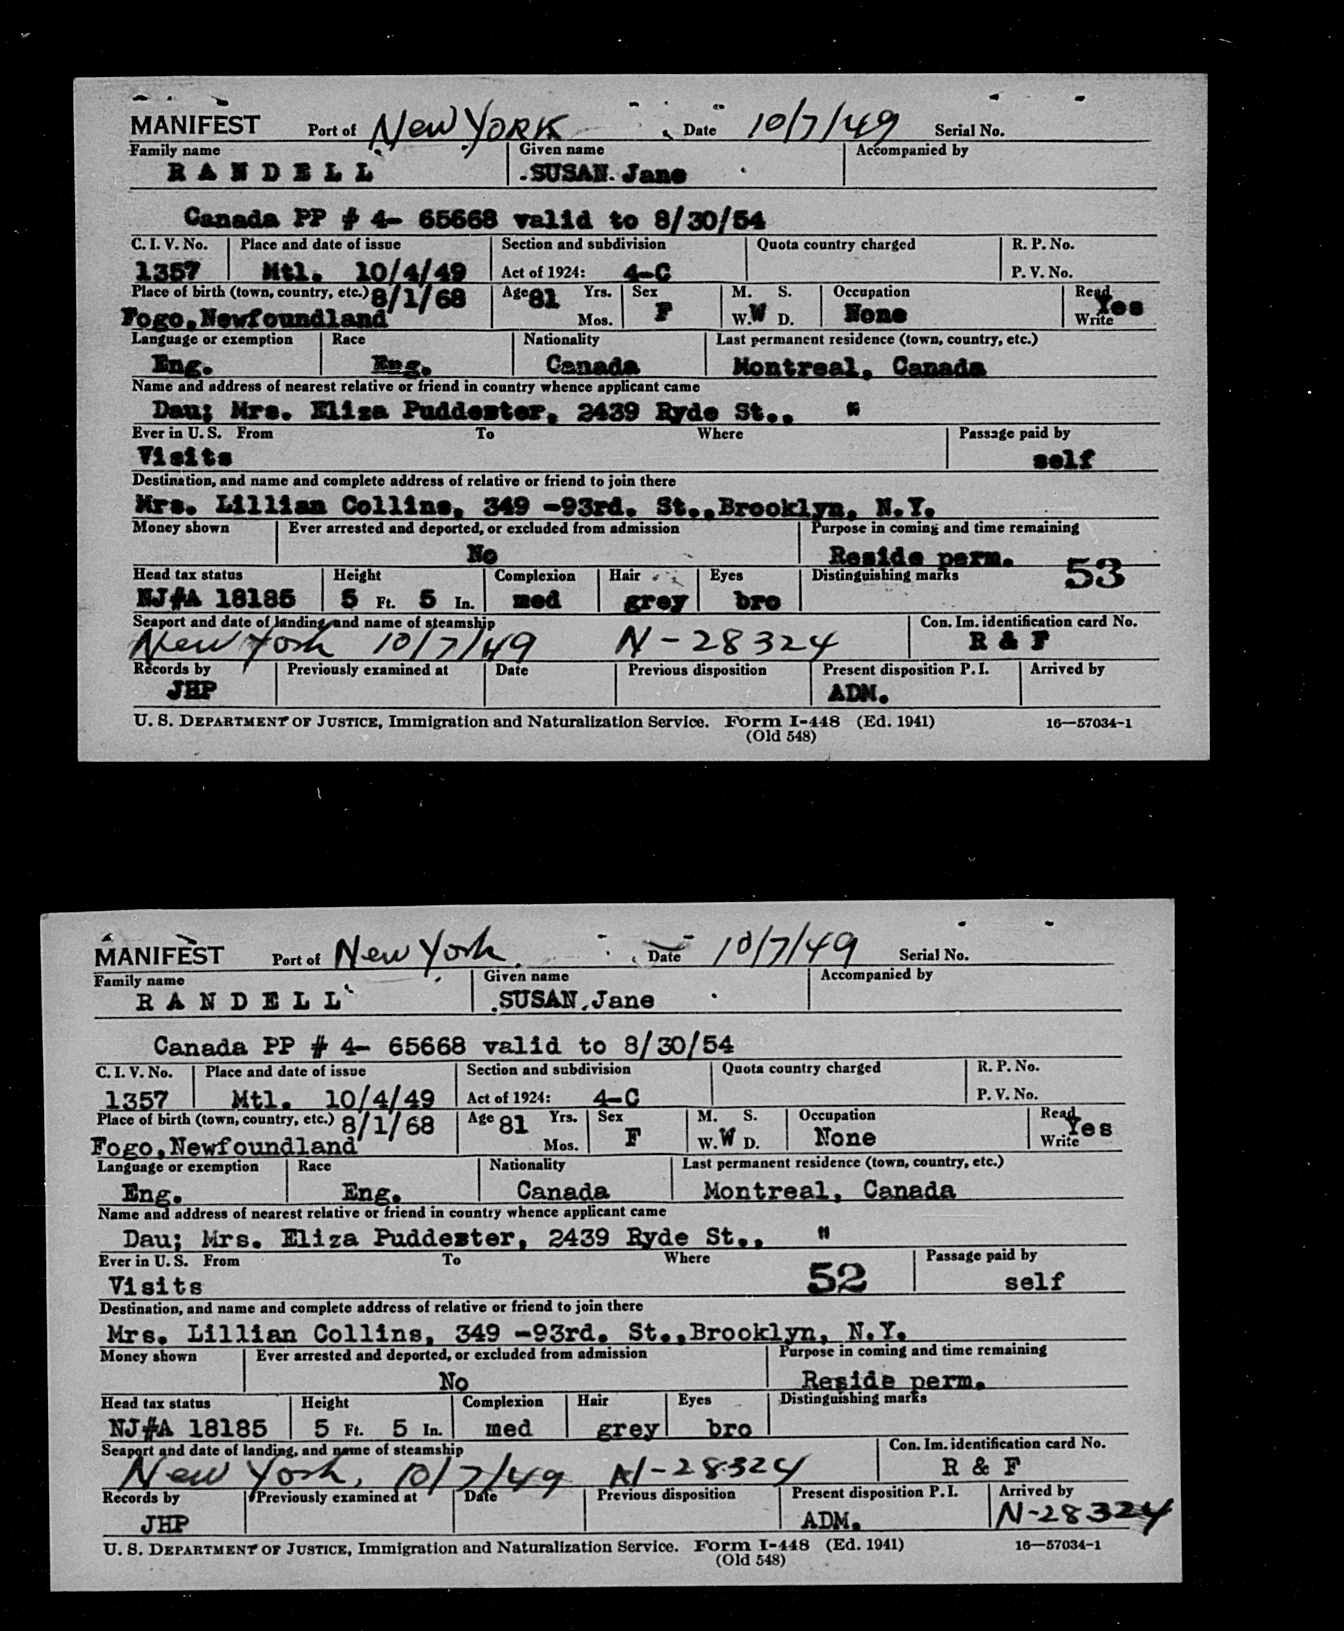 MANIFEST Port of New York Date 10/7/49 Serial No.
Family name Given name Accompanied by
RANDELL SUSAN Jane
Canada PP # 4- 65668 valid to 8/30/54
C. I. V. No. Place and date of issue Section and subdivision Quota country charged R. P. No.
1357 Mtl. 10/4/49 Act of 1924: 4-C P. V. No.
Place of birth (town, country, etc.) 8/1/68 Age 81 Yrs. Sex M. S. Occupation Read Yes
Fogo,Newfoundland Mos. F W. W D. None Write
Language or exemption Race Nationality Last permanent residence (town, country, etc.)
Eng. Eng. Canada Montreal, Canada
Name and address of nearest relative or friend in country whence applicant came
Dau; Mrs. Eliza Puddester, 2439 Ryde St., "
Ever in U. S. From To Where Passage paid by
Visits self
Destination, and name and complete address of relative or friend to join there
Mrs. Lillian Collins, 349 -93rd. St.,Brooklyn, N.Y.
Money shown Ever arrested and deported, or excluded from admission Purpose in coming and time remaining
No Reside perm. 53
Head tax status Height Complexion Hair Eyes Distinguishing marks
NJ#A 18185 5 Ft. 5 In. med grey bro
Seaport and date of landing, and name of steamship Con. Im. identification card No.
New York 10/7/49 N-28324 R & F
Records by Previously examined at Date Previous disposition Present disposition P. I. Arrived by
JHP ADM.
U. S. DEPARTMENT OF JUSTICE, Immigration and Naturalization Service. Form I-448 (Ed. 1941) 16—57034-1
(Old 548)
MANIFEST Port of New York Date 10/7/49 Serial No.
Family name Given name Accompanied by
RANDELL SUSAN Jane
Canada PP # 4- 65668 valid to 8/30/54
C. I. V. No. Place and date of issue Section and subdivision Quota country charged R. P. No.
1357 Mtl. 10/4/49 Act of 1924: 4-C P. V. No.
Place of birth (town, country, etc.) 8/1/68 Age 81 Yrs. Sex M. S. Occupation Read Yes
Fogo,Newfoundland Mos. F W. W D. None Write
Language or exemption Race Nationality Last permanent residence (town, country, etc.)
Eng. Eng. Canada Montreal, Canada
Name and address of nearest relative or friend in country whence applicant came
Dau; Mrs. Eliza Puddester, 2439 Ryde St., "
Ever in U. S. From To Where Passage paid by
Visits 52 self
Destination, and name and complete address of relative or friend to join there
Mrs. Lillian Collins, 349 -93rd. St.,Brooklyn, N.Y.
Money shown Ever arrested and deported, or excluded from admission Purpose in coming and time remaining
No Reside perm.
Head tax status Height Complexion Hair Eyes Distinguishing marks
NJ#A 18185 5 Ft. 5 In. med grey bro
Seaport and date of landing, and name of steamship Con. Im. identification card No.
New York, 10/7/49 N-28324 R & F
Records by Previously examined at Date Previous disposition Present disposition P. I. Arrived by
JHP ADM. N-28324
U. S. DEPARTMENT OF JUSTICE, Immigration and Naturalization Service. Form I-448 (Ed. 1941) 16—57034-1
(Old 548)